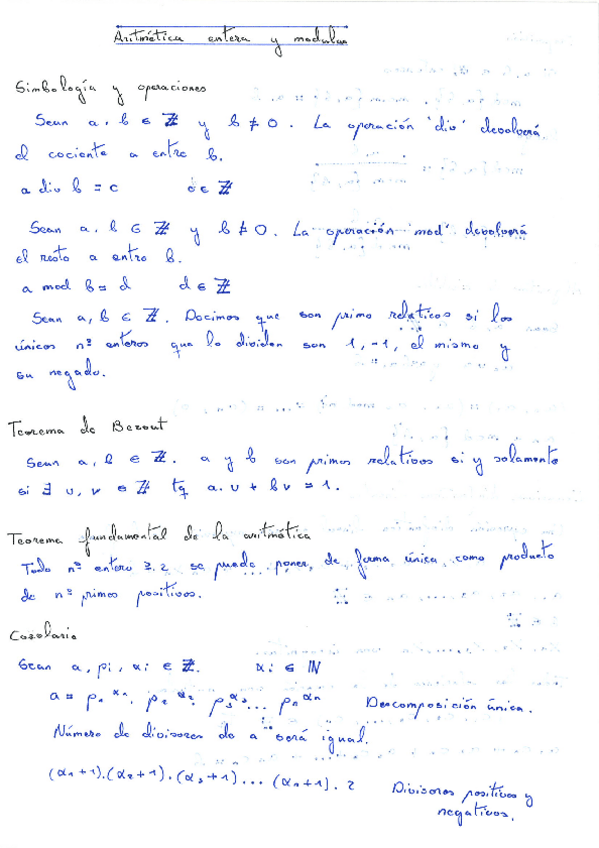 Aritmética entera y modular
Simbología y operaciones
Sean a, b ∈ ℤ y b ≠ 0. La operación 'div' devolverá
el cociente a entre b.
a div b = c c ∈ ℤ
Sean a, b ∈ ℤ y b ≠ 0. La operación 'mod' devolverá
el resto a entre b.
a mod b = d d ∈ ℤ
Sean a, b ∈ ℤ. Decimos que son primo relativos si los
únicos nº enteros que lo dividen son 1, -1, el mismo y
su negado.
Teorema de Bezout
Sean a, b ∈ ℤ. a y b son primos relativos si y solamente
si ∃ u, v ∈ ℤ tq a.u + bv = 1.
Teorema fundamental de la aritmética
Todo nº entero ≥ 2 se puede poner, de forma única, como producto
de nº primos positivos.
Corolario
Sean a, pi, αi ∈ ℤ. αi ∈ ℕ
a = p₁^α₁. p₂^α₂. p₃^α₃... pₙ^αₙ Descomposición única.
Número de divisores de a será igual.
(α₁+1).(α₂+1).(α₃+1)...(αₙ+1). 2 Divisores positivos y
negativos.